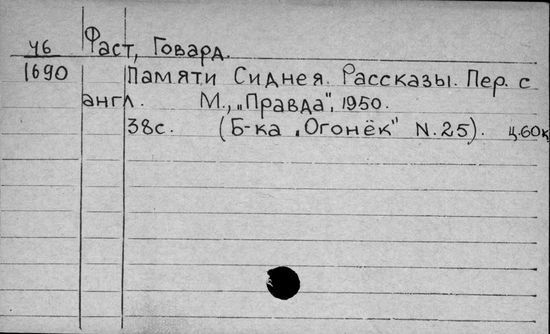 Ч6
1690
Фаст, Говард.
Памяти Сиднея. Рассказы. Пер. с
англ. М., „Правда", 1950.
38с. (Б-ка „Огонёк" N.25). ц.60к